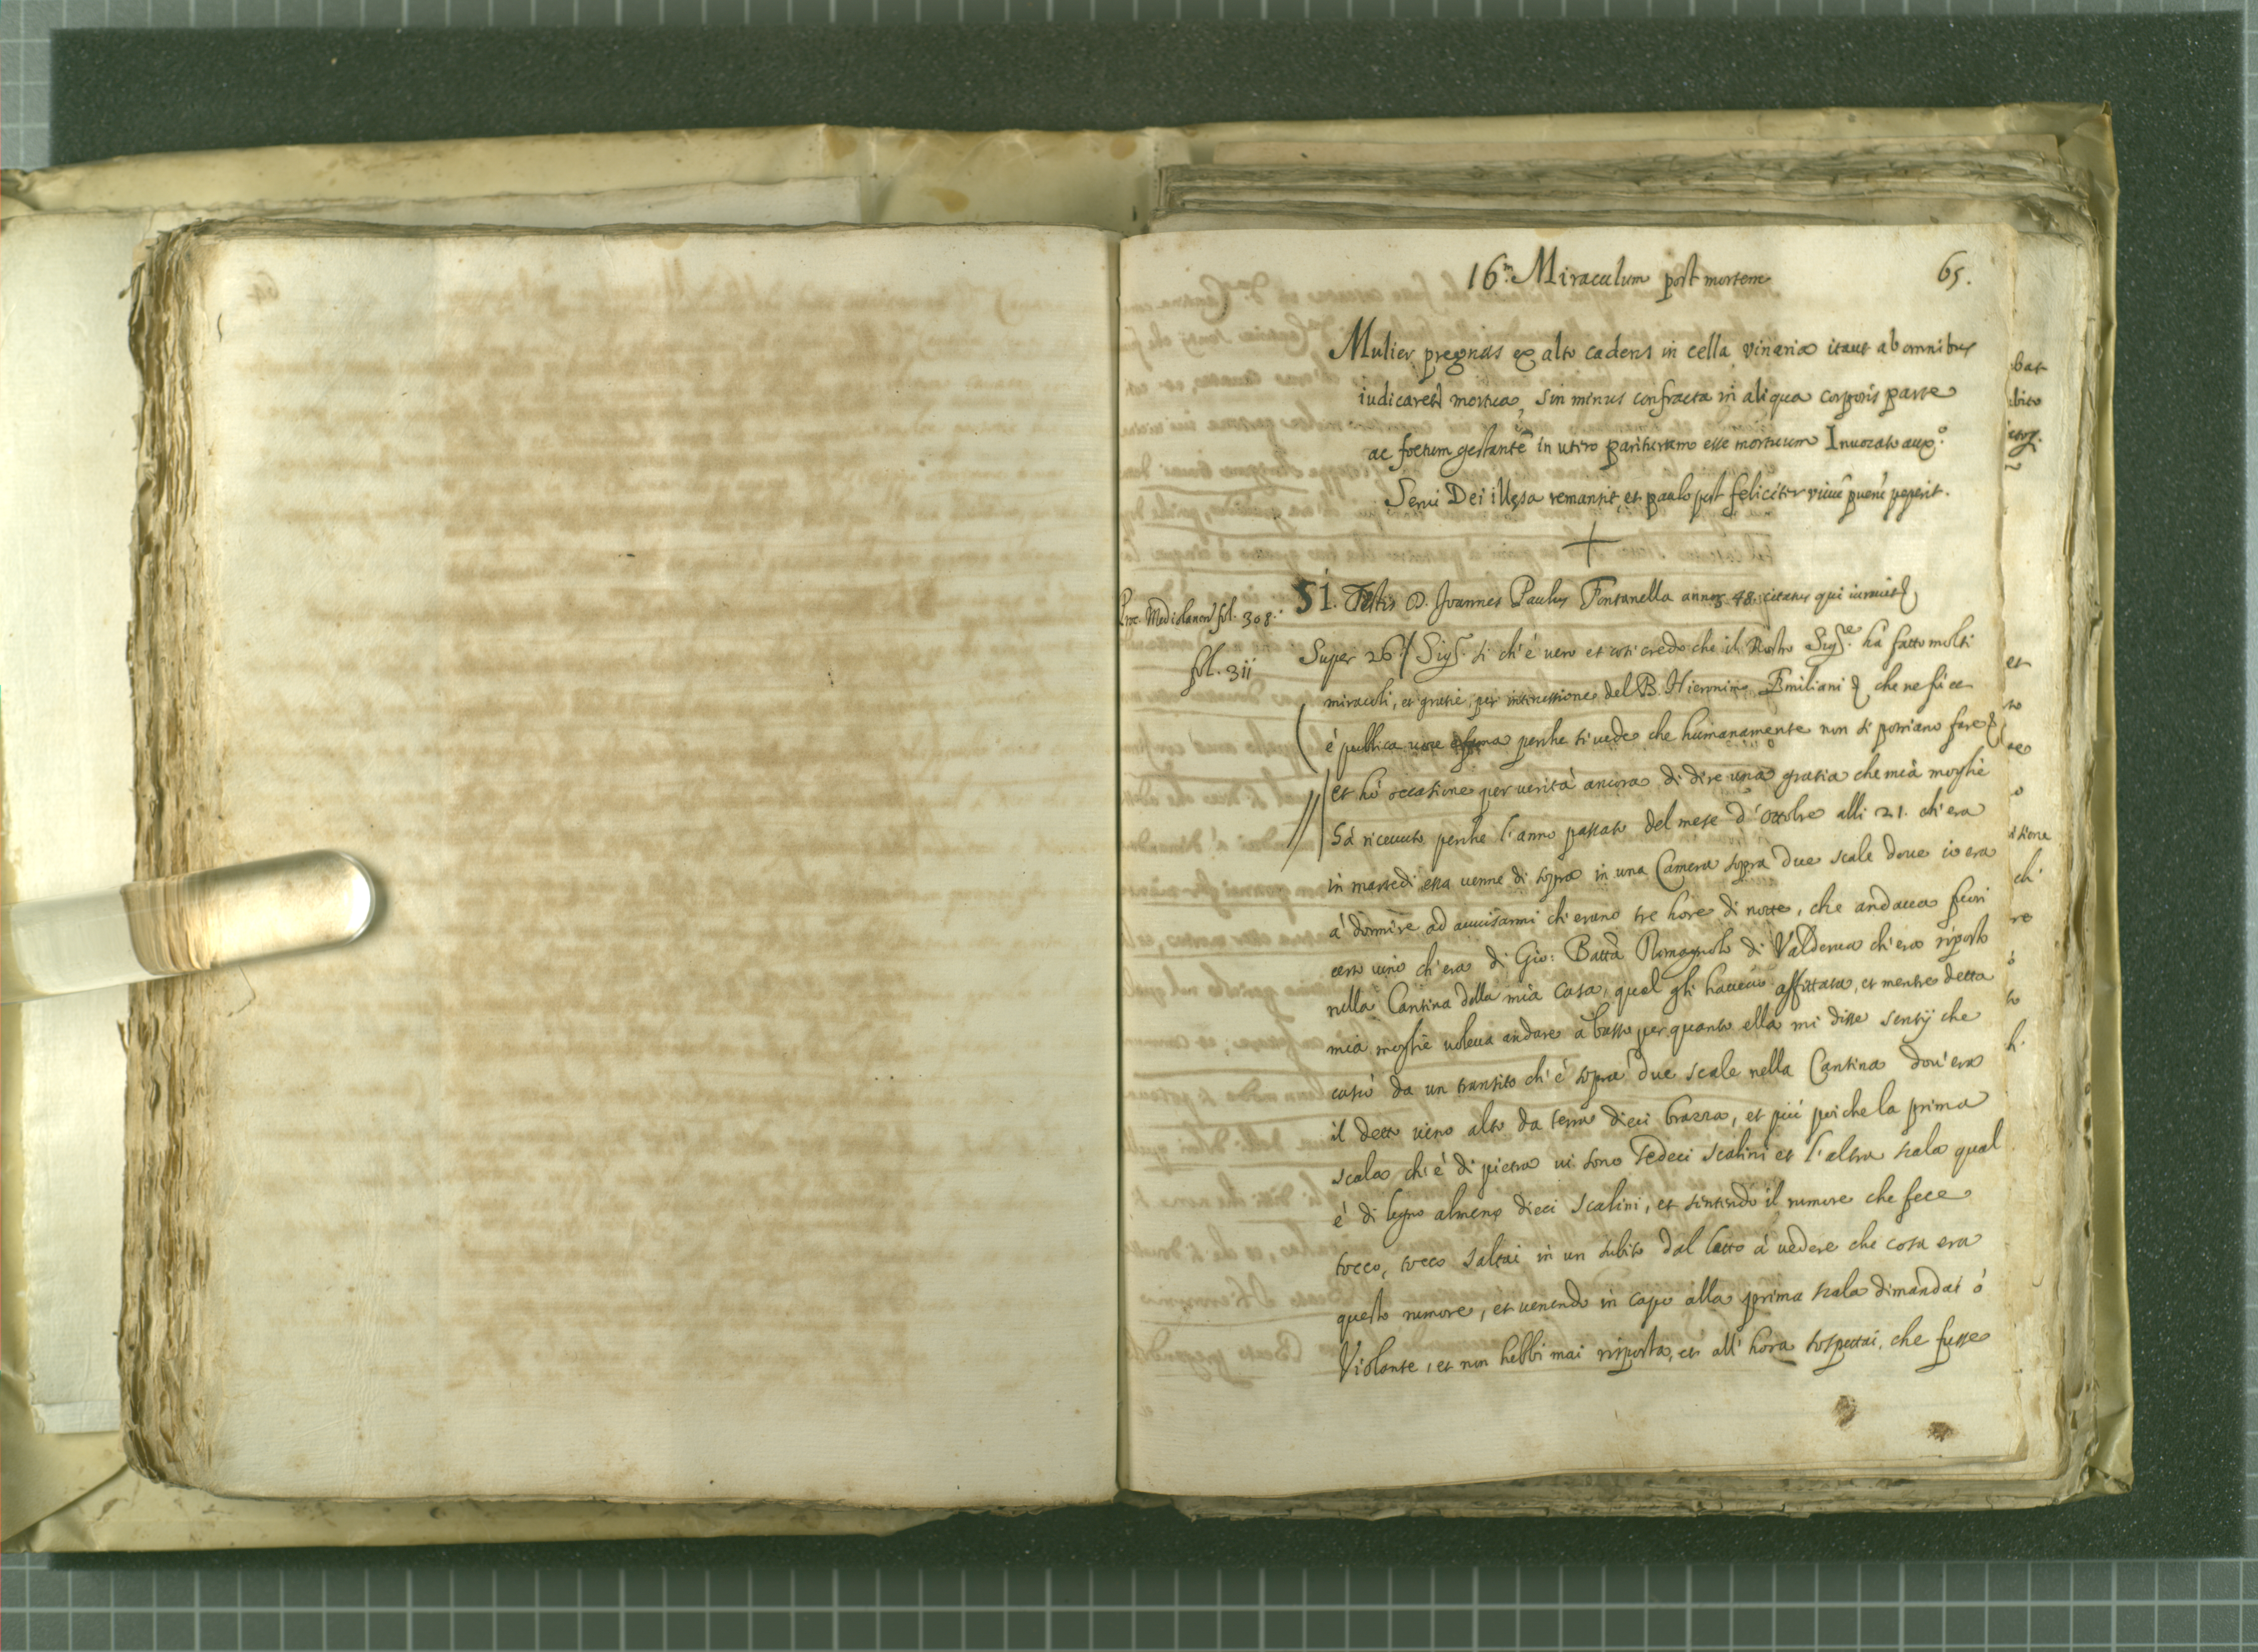 16.m Miraculum post mortem
65.
Mulier pregnas ex alto cadens in cella vinaria itaut ab omnibus
iudicaret mortua, sin minus confracta in aliqua corporis parte
ac foetum gestante in utero parituram esse mortuum Inuocato aux.o
Serui Dei illesa remansit, et paulo post feliciter viuu pueru peperit.
Proc. Mediolanen fol. 308.
51. Testis D. Joannes Paulus Fontanella annor 48. citatus qui iurauit
fol. 311
Super 26. Sig.r si ch'è uero et cosi credo che il Nostro Sig.re hà fatto molti
miracoli, et gratie per intercessione del B. Hieronimo Emiliani che ne fù et
è publica uoce perche si uede che humanamente non si potriano fare
et hò occasione per uerità ancora di dire una gratia che mia moglie
hà riceuuto perche l'anno passato del mese d'ottobre alli 21. ch'era
in martedi essa uenne di sopra in una Camera sopra due scale doue io era
à dormire ad auuisarmi ch'erano tre hore di notte, che andaua fuori
certo uino ch'era di Gio: Batta Romagnolo di Valderua ch'era riposto
nella Cantina della mia Casa, qual gli haueuo affittata, et mentre detta
mia moglie uoleua andare à basso per quanto ella mi disse sentij che
cascò da un transito ch'è sopra due scale nella Cantina dou'era
il detto uino alto da terra dieci brazza, et più poi che la prima
scala ch'è di pietra ui sono sedeci scalini et l'altra scala qual
è di legno almeno dieci scalini, et sentendo il rumore che fece
tocco, tocco saltai in un subito dal letto à uedere che cosa era
questo rumore, et uenendo in capo alla prima scala dimandai ò
Violante, et non hebbi mai risposta, et all'hora sospettai, che fusse